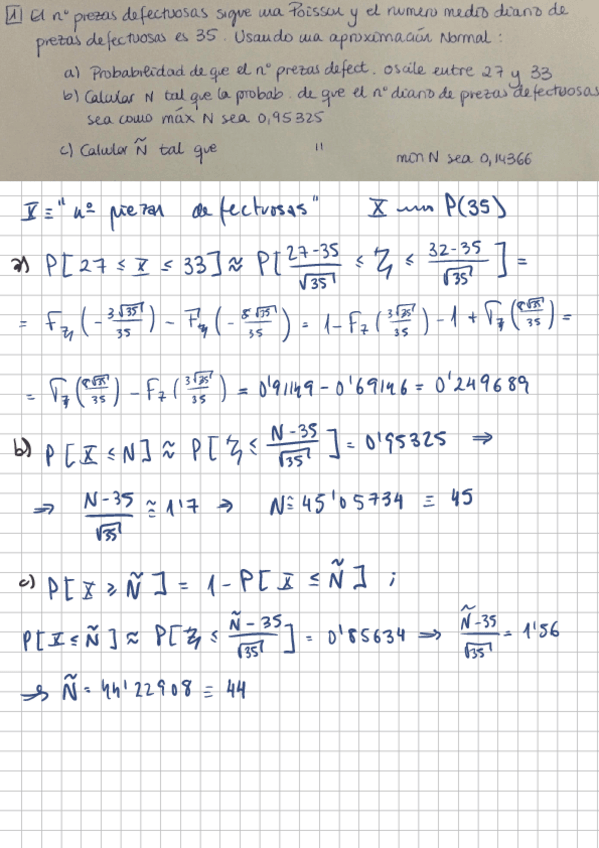 1 El nº piezas defectuosas sigue una Poisson y el numero medio diario de
piezas defectuosas es 35. Usando una aproximación Normal:
a) Probabilidad de que el nº piezas defect. oscile entre 27 y 33
b) Calcular N tal que la probab. de que el nº diario de piezas defectuosas
sea como máx N sea 0,95325
c) Calcular Ñ tal que " min N sea 0,14366
X ≡ "nº piezas defectuosas" X ~ P(35)
a) P[27 ≤ X ≤ 33] ≈ P[(27-35)/√35 ≤ Z ≤ (32-35)/√35] =
= F_Z(-3√35/35) - F_Z(-8√35/35) = 1 - F_Z(3√35/35) - 1 + F_Z(8√35/35) =
= F_Z(8√35/35) - F_Z(3√35/35) = 0'91149 - 0'69146 = 0'249689
b) P[X ≤ N] ≈ P[Z ≤ (N-35)/√35] = 0'95325 ⇒
⇒ (N-35)/√35 ≅ 1'7 ⇒ N ≅ 45'05734 ≡ 45
c) P[X ≥ Ñ] = 1 - P[X ≤ Ñ] ;
P[X ≤ Ñ] ≈ P[Z ≤ (Ñ-35)/√35] = 0'85634 ⇒ (Ñ-35)/√35 = 1'56
⇒ Ñ = 44'22908 ≡ 44